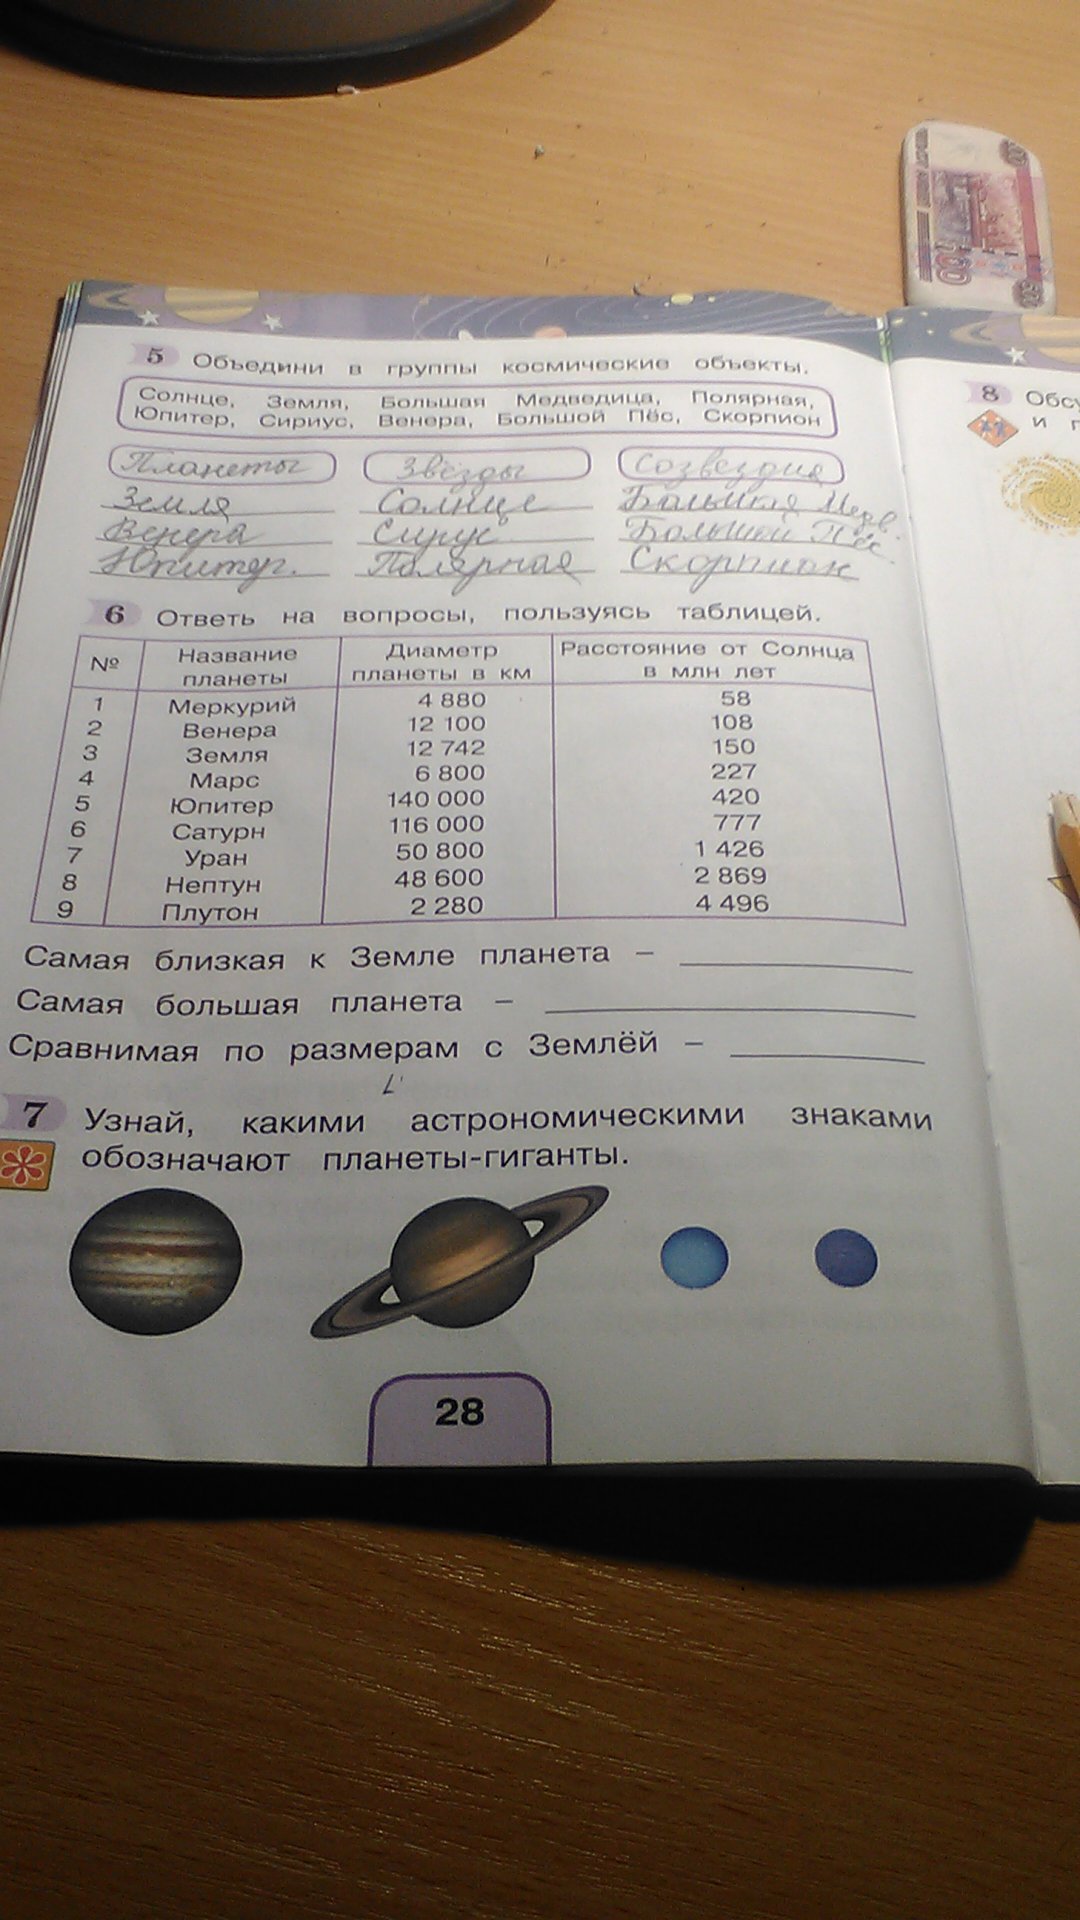 5 Объедини в группы космические объекты.
Солнце, Земля, Большая Медведица, Полярная,
Юпитер, Сириус, Венера, Большой Пёс, Скорпион
Планеты Звёзды Созвездия
Земля Солнце Большая Медв.
Венера Сириус Большой Пёс
Юпитер. Полярная Скорпион
6 Ответь на вопросы, пользуясь таблицей.
№ Название планеты Диаметр планеты в км Расстояние от Солнца в млн лет
1 Меркурий 4 880 58
2 Венера 12 100 108
3 Земля 12 742 150
4 Марс 6 800 227
5 Юпитер 140 000 420
6 Сатурн 116 000 777
7 Уран 50 800 1 426
8 Нептун 48 600 2 869
9 Плутон 2 280 4 496
Самая близкая к Земле планета –
Самая большая планета –
Сравнимая по размерам с Землёй –
7 Узнай, какими астрономическими знаками
обозначают планеты-гиганты.
28
8
и
500